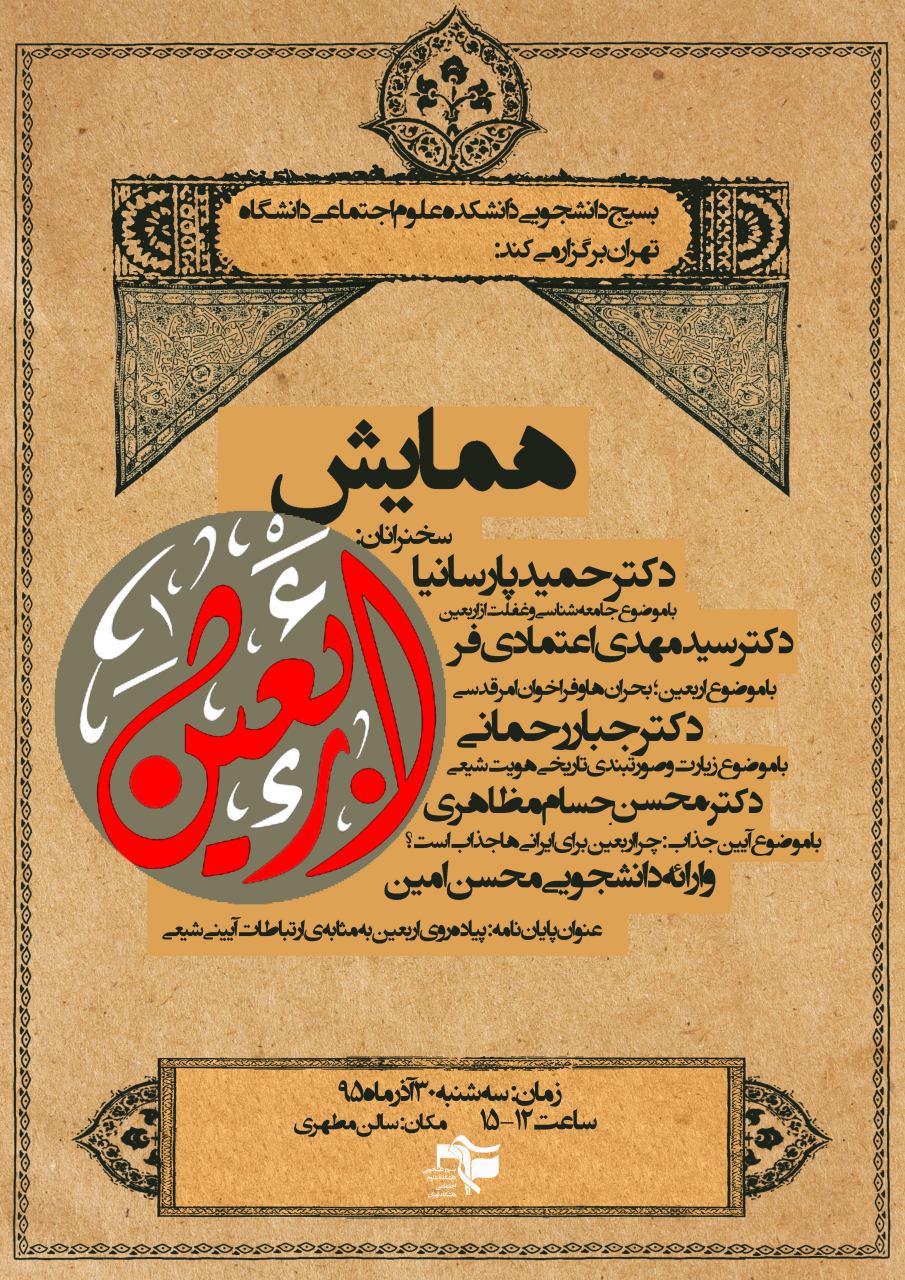 بسیج دانشجویی دانشکده علوم اجتماعی دانشگاه
تهران برگزار می کند:
همایش
اربعین
سخنرانان:
دکتر حمید پارسانیا
با موضوع جامعه شناسی و غفلت از اربعین
دکتر سید مهدی اعتمادی فر
با موضوع اربعین؛ بحران ها و فراخوان امر قدسی
دکتر جبار رحمانی
با موضوع زیارت و صورتبندی تاریخی هویت شیعی
دکتر محسن حسام مظاهری
با موضوع آیین جذاب: چرا اربعین برای ایرانی ها جذاب است؟
و ارائه دانشجویی محسن امین
عنوان پایان نامه: پیاده روی اربعین به مثابه ی ارتباطات آیینی شیعی
زمان: سه شنبه ۳۰ آذر ماه ۹۵
ساعت ۱۲-۱۵ مکان: سالن مطهری
بسیج دانشجویی
دانشکده علوم
اجتماعی
دانشگاه تهران